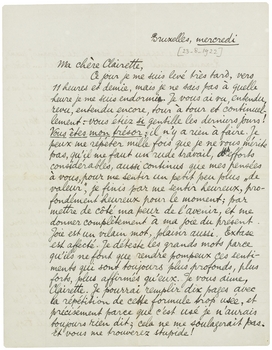 Bruxelles, mercredi
[23-5-1923]
Ma chère Clairette,
Ce jour je me suis levé très tard, vers
11 heures et demie, mais je ne sais pas à quelle
heure je me suis endormie. Je vous ai vu, entendu,
revu, entendu encore, tour à tour et continuel-
lement - vous étiez si gentille les derniers jours!
Vous êtes mon trésor; il n'y a rien à faire. Je
peux me répéter mille fois que je ne vous mérite
pas, qu'il me faut un rude travail, efforts
considérables, aussi continus que mes pensées
à vous, pour me sentir un petit peu plus "de
valeur"; je finis par me sentir heureux, pro-
fondément heureux pour le moment; par
mettre de côté ma peur de l'avenir, et me
donner complètement à ma joie du présent.
Joie est un vilain mot, plaisir aussi. Extase
est affecté. Je déteste les grands mots parce
qu'ils ne font que rendre pompeux ces senti-
ments qui sont toujours plus profonds, plus
forts, plus affirmés qu'eux. Je vous aime,
Clairette. Je pourrai remplir dix pages avec
la répétition de cette formule trop usée, et
précisément parce que c'est usé je n'aurais
toujours rien dit; cela ne me soulagerait pas.
Et vous me trouverez stupide!